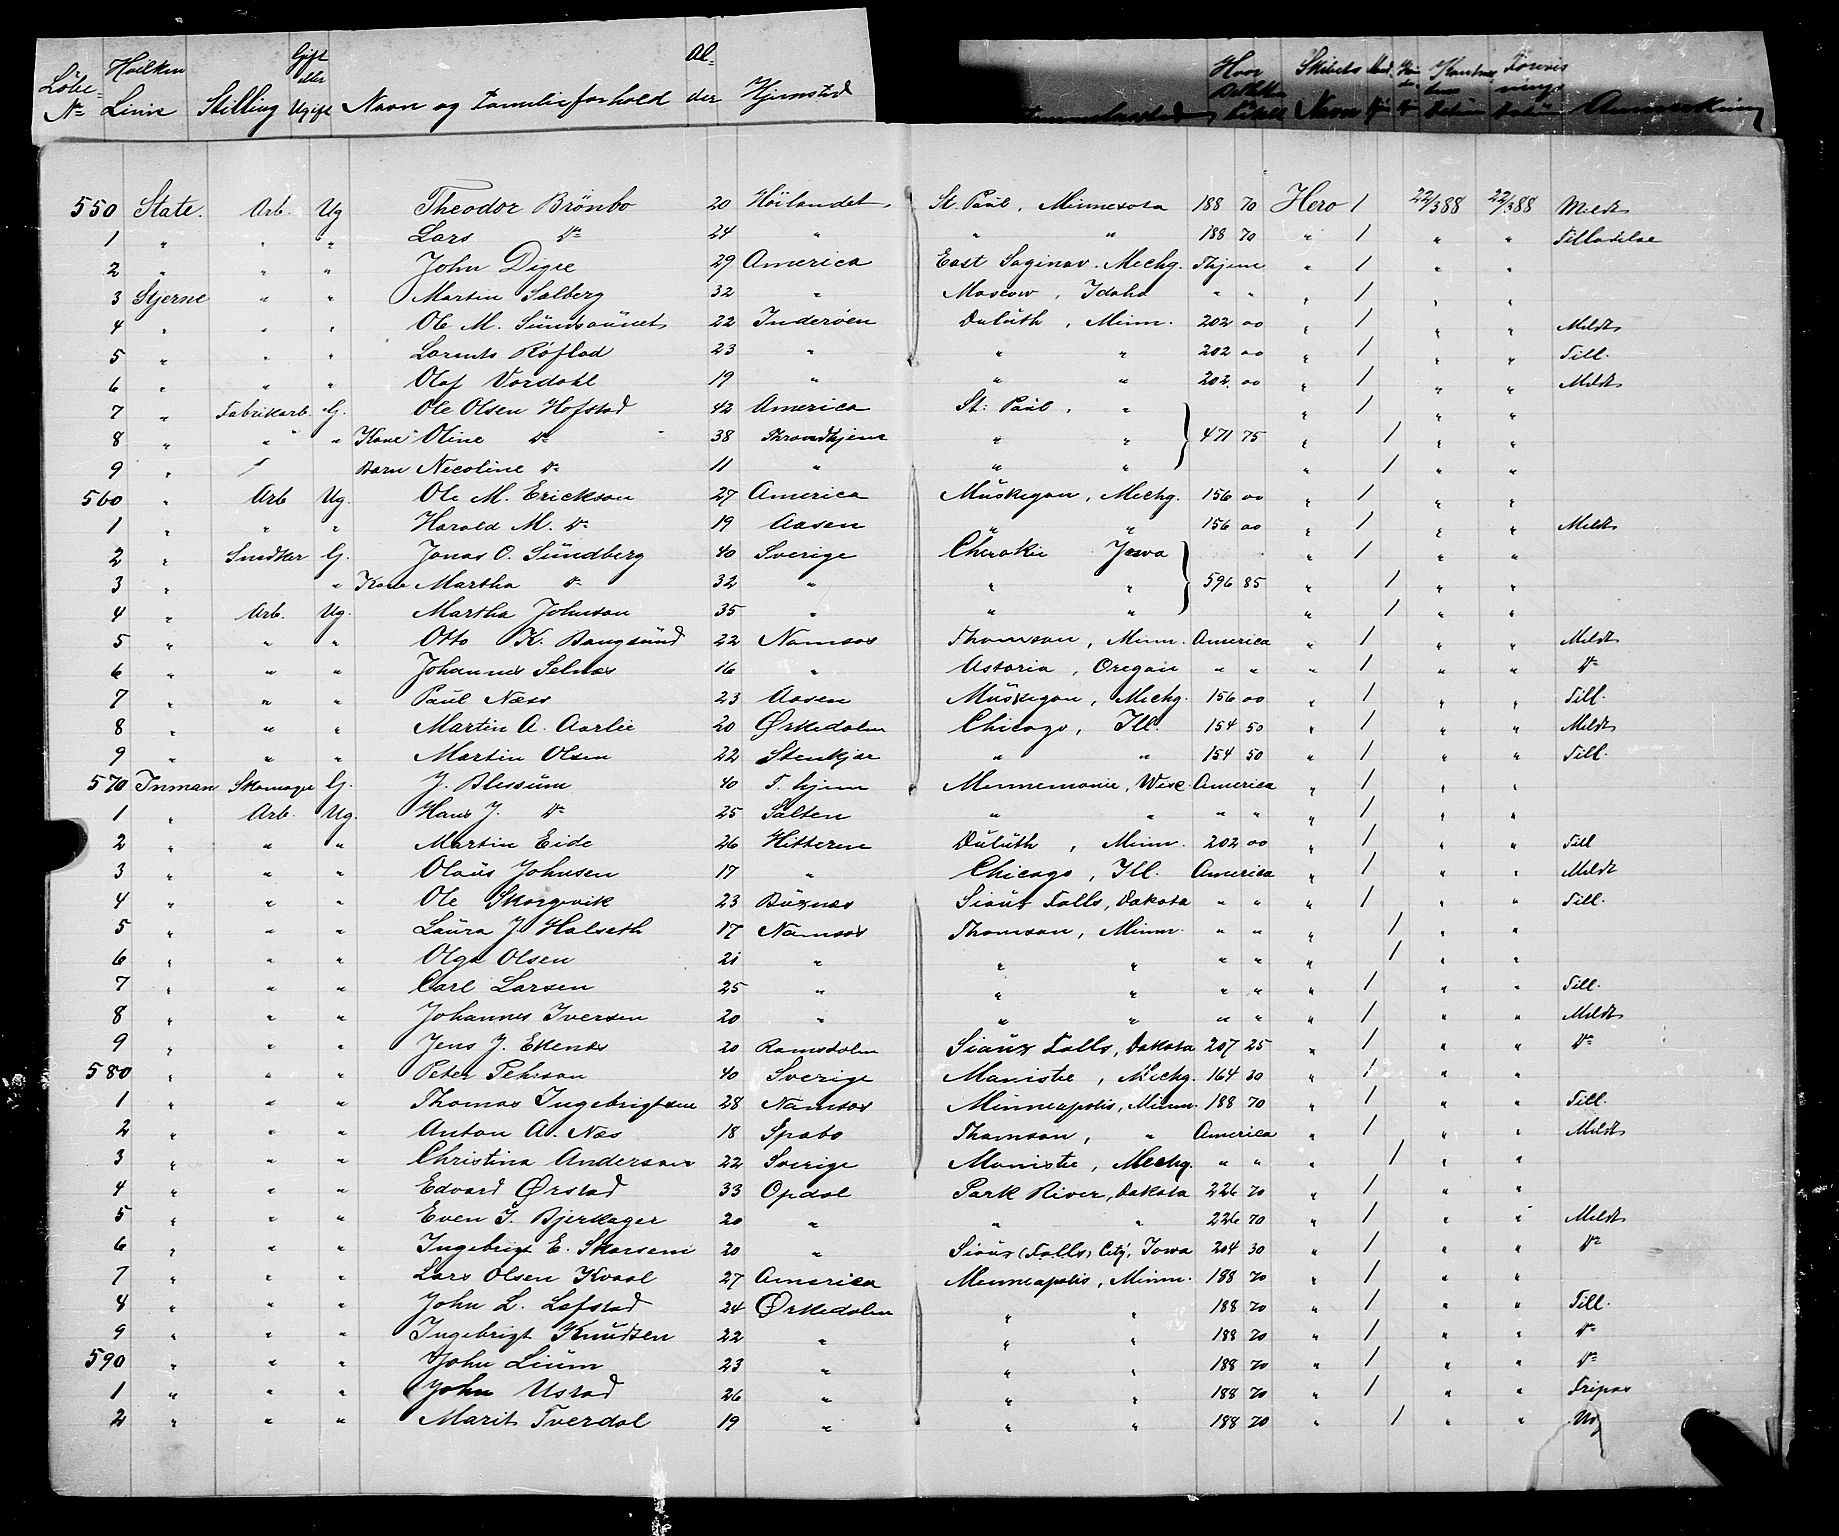 Löbe- Nr. Hvilken Linie Stilling Gift eller Ugift Navn og Familieforhold Al- der Hjemsted Bestemmelsessted Skibets Navn Anmerkning
550 State. Arb. Ug Theodor Brönbo 20 Höilandet St. Paul, Minnesota 188 70 Hero 1 22/3 88 22/3 88 Meldt
1 " " " Lars Do 24 " " " 188 70 " 1 " " Tilladelse
2 " " " John Digre 29 America East Saginav. Mechg. Thjem " 1 " "
3 Stjerne " " Martin Salberg 32 " Moscow, Idaho " " " 1 " "
4 " " " Ole M. Sundsaunet 22 Inderöen Duluth, Minn. 202 00 " 1 " " Meldt
5 " " " Lorents Røflad 23 " " " 202 00 " 1 " " Till.
6 " " " Olaf Vordahl 19 " " " 202 00 " 1 " " Meldt
7 " Fabrikarb. G. Ole Olsen Hofstad 42 America St: Paul, " " 1 " "
8 " " " Kone Oline Do 38 Throndhjem " " 471 75 " 1 " "
9 " " Barn Necoline Do 11 " " " " 1 " "
560 " Arb Ug. Ole M. Erickson 27 America Muskegon, Mechg. 156 00 " 1 " "
1 " " " Harold M. Do 19 Aasen " " 156 00 " 1 " " Meldt
2 " Snedker G. Jonas O. Sundberg 40 Sverige Cherokee Jowa " 1 " "
3 " " Kone Martha Do 32 " " " 596 85 " 1 " "
4 " Arb. Ug. Martha Johnson 35 " " " " 1 " "
5 " " " Otto K. Bangsund 22 Namsos Thomson, Minn. America " 1 " " Meldt
6 " " " Johannes Selnæs 16 " Astoria, Oregon " " " 1 " " Do
7 " " " Paul Næss 23 Aasen Muskegon, Mechg. 156 00 " 1 " " Till.
8 " " " Martin A. Aarlie 20 Ørkedalen Chicago, Ill. 154 50 " 1 " " Meldt
9 " " " Martin Olsen 22 Stenkjær " " 154 50 " 1 " " Till.
570 Inman Skomager G. J. Blessum 40 T. hjem Mennemonie, Wisc. America " 1 " "
1 " Arb. Ug. Hans J. Do 25 Salten " " " " " 1 " "
2 " " " Martin Eide 26 Hitteren Duluth, Minn. 202 00 " 1 " " Till
3 " " " Olaus Johnsen 17 " Chicago, Ill. America " 1 " " Meldt
4 " " " Ole Skorgevik 23 Buxnæs Sioux Falls, Dakota " " " 1 " " Till.
5 " " " Laura J. Halseth 17 Namsos Thomson, Minn. " " " 1 " "
6 " " " Olga Olsen 21 " " " " " " 1 " "
7 " " " Carl Larsen 25 " " " " " " 1 " " Till.
8 " " " Johannes Iversen 20 " " " " " " 1 " " Meldt
9 " " " Jens J. Ekenæs 20 Ramsdalen Sioux Falls, Dakota 207 25 " 1 " " Do
580 " " " Peter Pehrson 40 Sverige Manistee, Mechg. 164 30 " 1 " "
1 " " " Thomas Ingebrigtsen 28 Namsos Minneapolis, Minn. 188 70 " 1 " " Till.
2 " " " Anton A. Næs 18 Sparbo Thomson, " America " 1 " " Meldt
3 " " " Christina Anderson 22 Sverige Manistee, Mechg. " " " 1 " "
4 " " " Edvard Ørstad 33 Opdal Park River, Dakota 226 70 " 1 " "
5 " " " Even I. Bjerkager 20 " " " 226 70 " 1 " " Meldt
6 " " " Ingebrigt E. Skarsem 20 " Sioux (Falls) City, Iowa 204 30 " 1 " " Do
7 " " " Lars Olsen Kvaal 27 America Minneapolis, Minn. 188 70 " 1 " "
8 " " " John L. Lefstad 24 Ørkedalen " " 188 70 " 1 " " Till.
9 " " " Ingebrigt Knudsen 22 " " " 188 70 " 1 " " Do
590 " " " John Lium 23 " " " 188 70 " 1 " " Do
1 " " " John Ustad 26 " " " 188 70 " 1 " " Fripas
2 " " " Marit Tverdal 19 " " " 188 70 " 1 " "